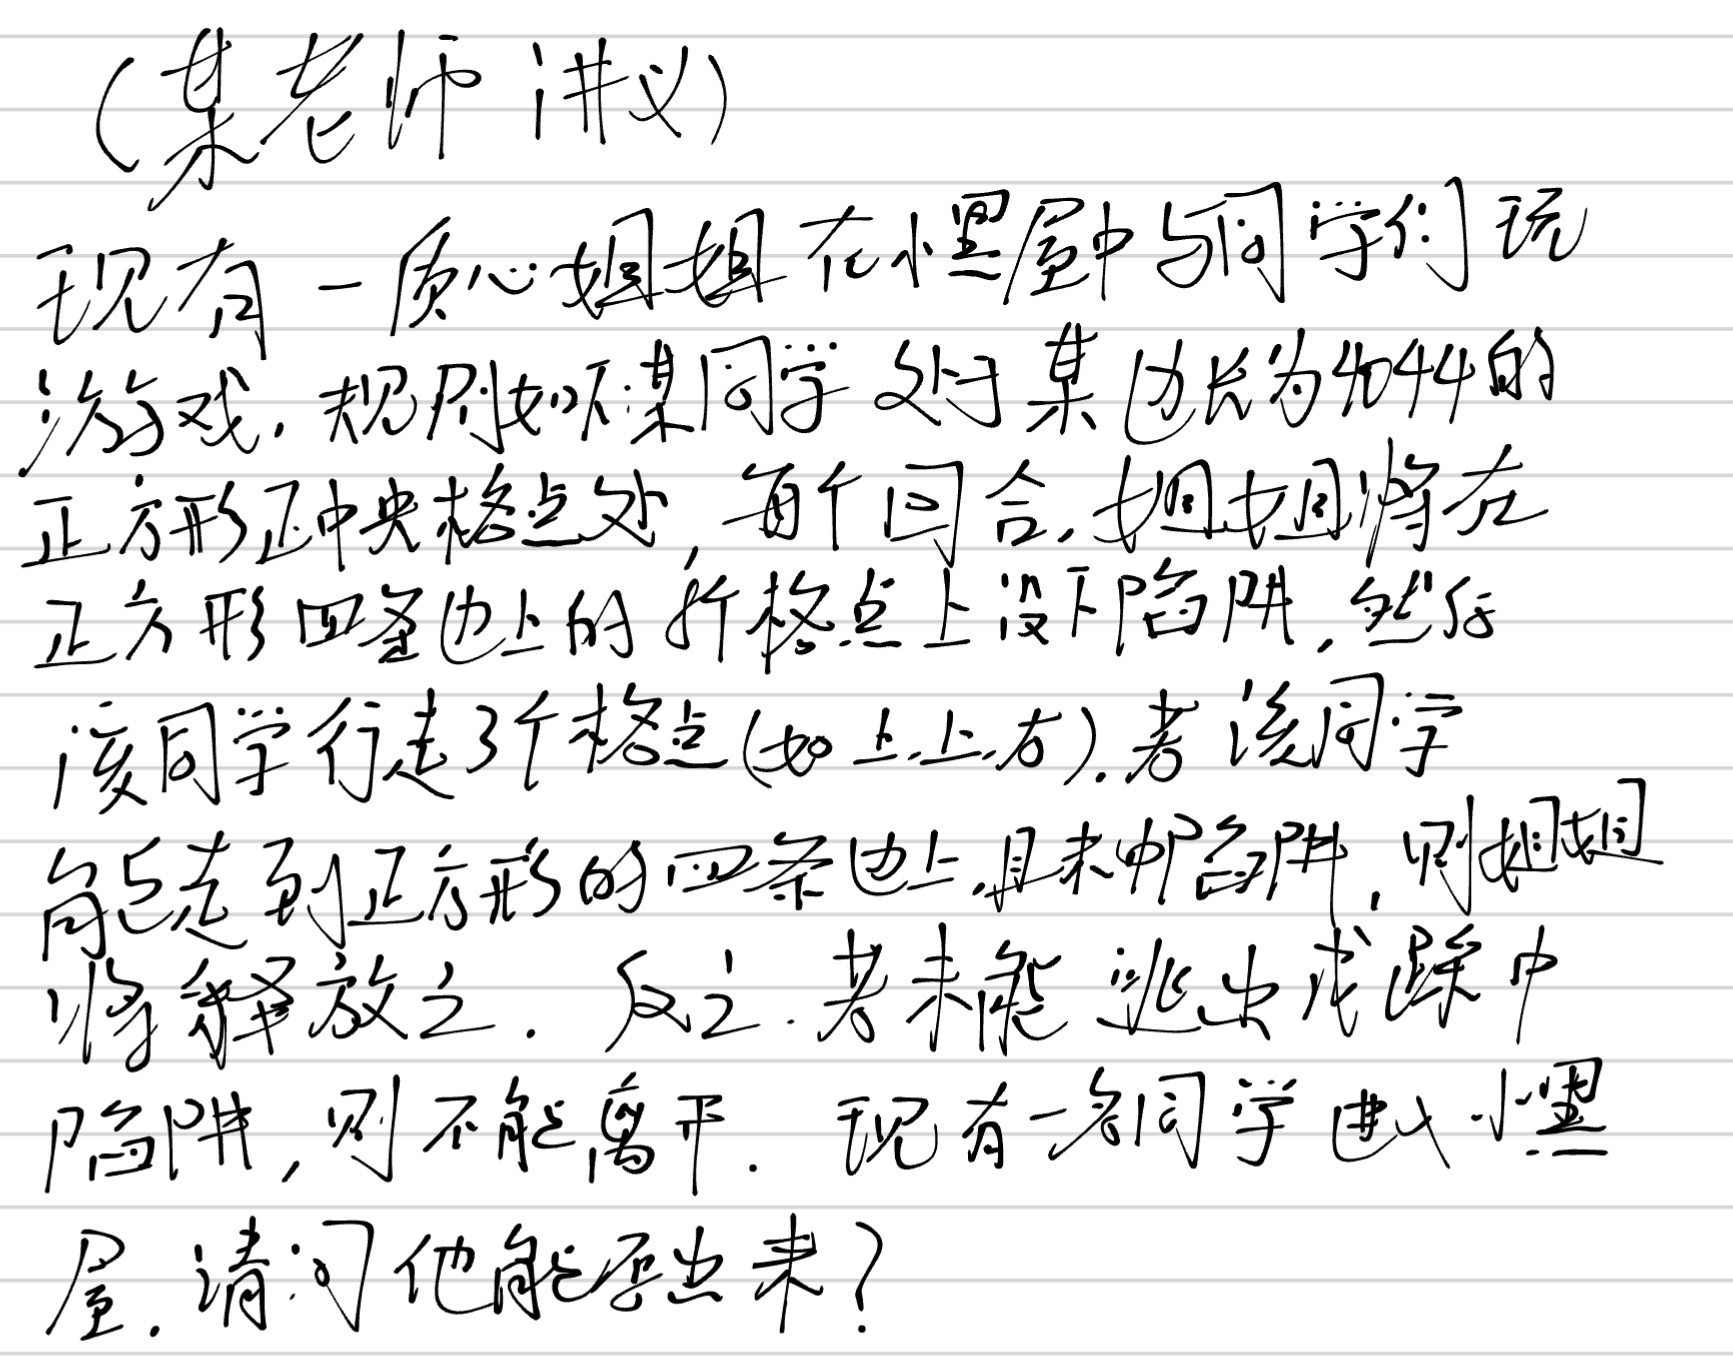 (某老师讲义)
现有一质心姐姐在小黑屋中与同学们玩
游戏,规则如下:某同学处于某边长为4044的
正方形正中央格点处,每个回合,姐姐将在
正方形四条边上的1个格点上设下陷阱,然后
该同学行走3个格点(如上.上.右).若该同学
能走到正方形的四条边上,且未中陷阱,则姐姐
将释放之.反之.若未能逃出或踩中
陷阱,则不能离开.现有一名同学进入小黑
屋.请问他能否出来?